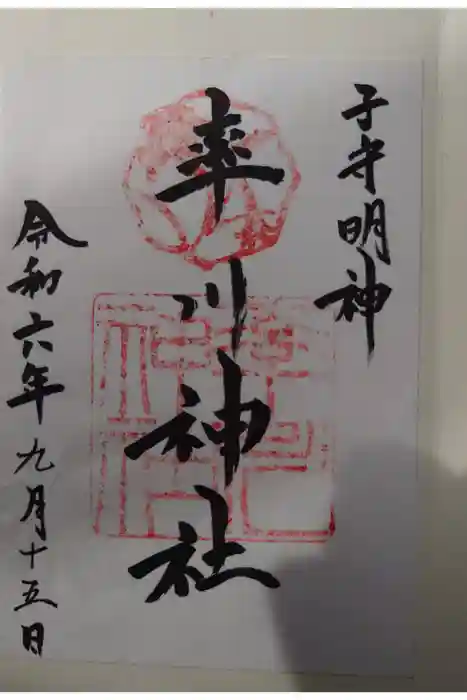 子守明神
率川神社
令和六年九月十五日